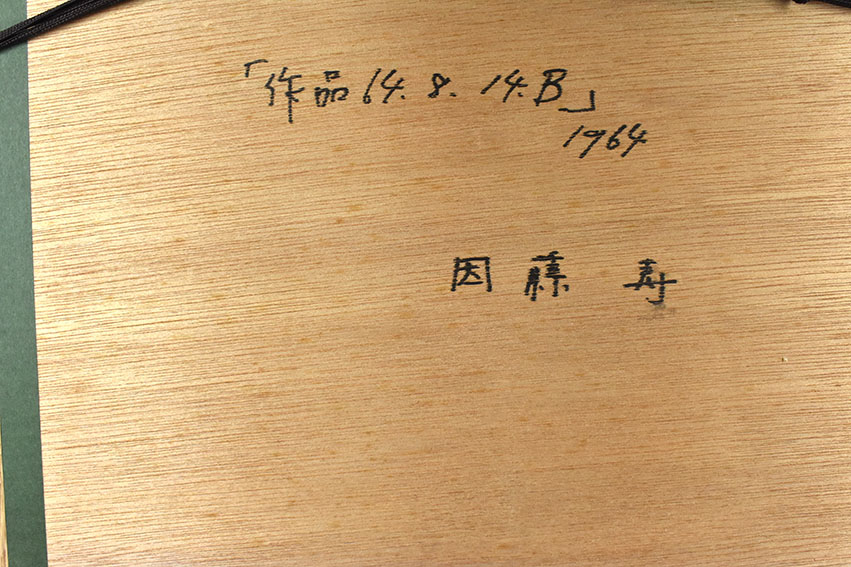 「作品64.8.14.B」
1964
因藤 寿